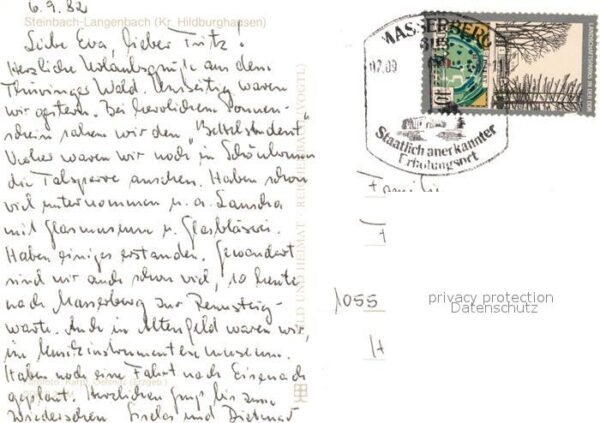 6.9.82
Steinbach-Langenbach (Kr. Hildburghausen)
Liebe Eva, lieber Fritz!
Herzliche Urlaubsgrüße aus dem
Thüringer Wald. Umseitig waren
wir gestern. Bei herrlichem Sonnen-
schein sahen wir den "Bettelstudent".
Vorher waren wir noch in Schönbrunn
die Talsperre ansehen. Haben schon
viel unternommen u. a. Lauscha
mit Glasmuseum u. Glasbläserei.
Haben einiges erstanden. Gewandert
sind wir auch schon viel, so heute
nach Masserberg zur Rennsteig-
warte. Auch in Altenfeld waren wir,
im Musikinstrumentenmuseum.
Haben noch eine Fahrt nach Eisenach
geplant. Herzlichen Gruß bis zum
Wiedersehen Gisela und Dietmar
BILD UND HEIMAT · REICHENBACH (VOGTL)
MASSERBERG
6115
07.09
Staatlich anerkannter
Erholungsort
10
DDR
Familie
F
1055
H
privacy protection
Datenschutz